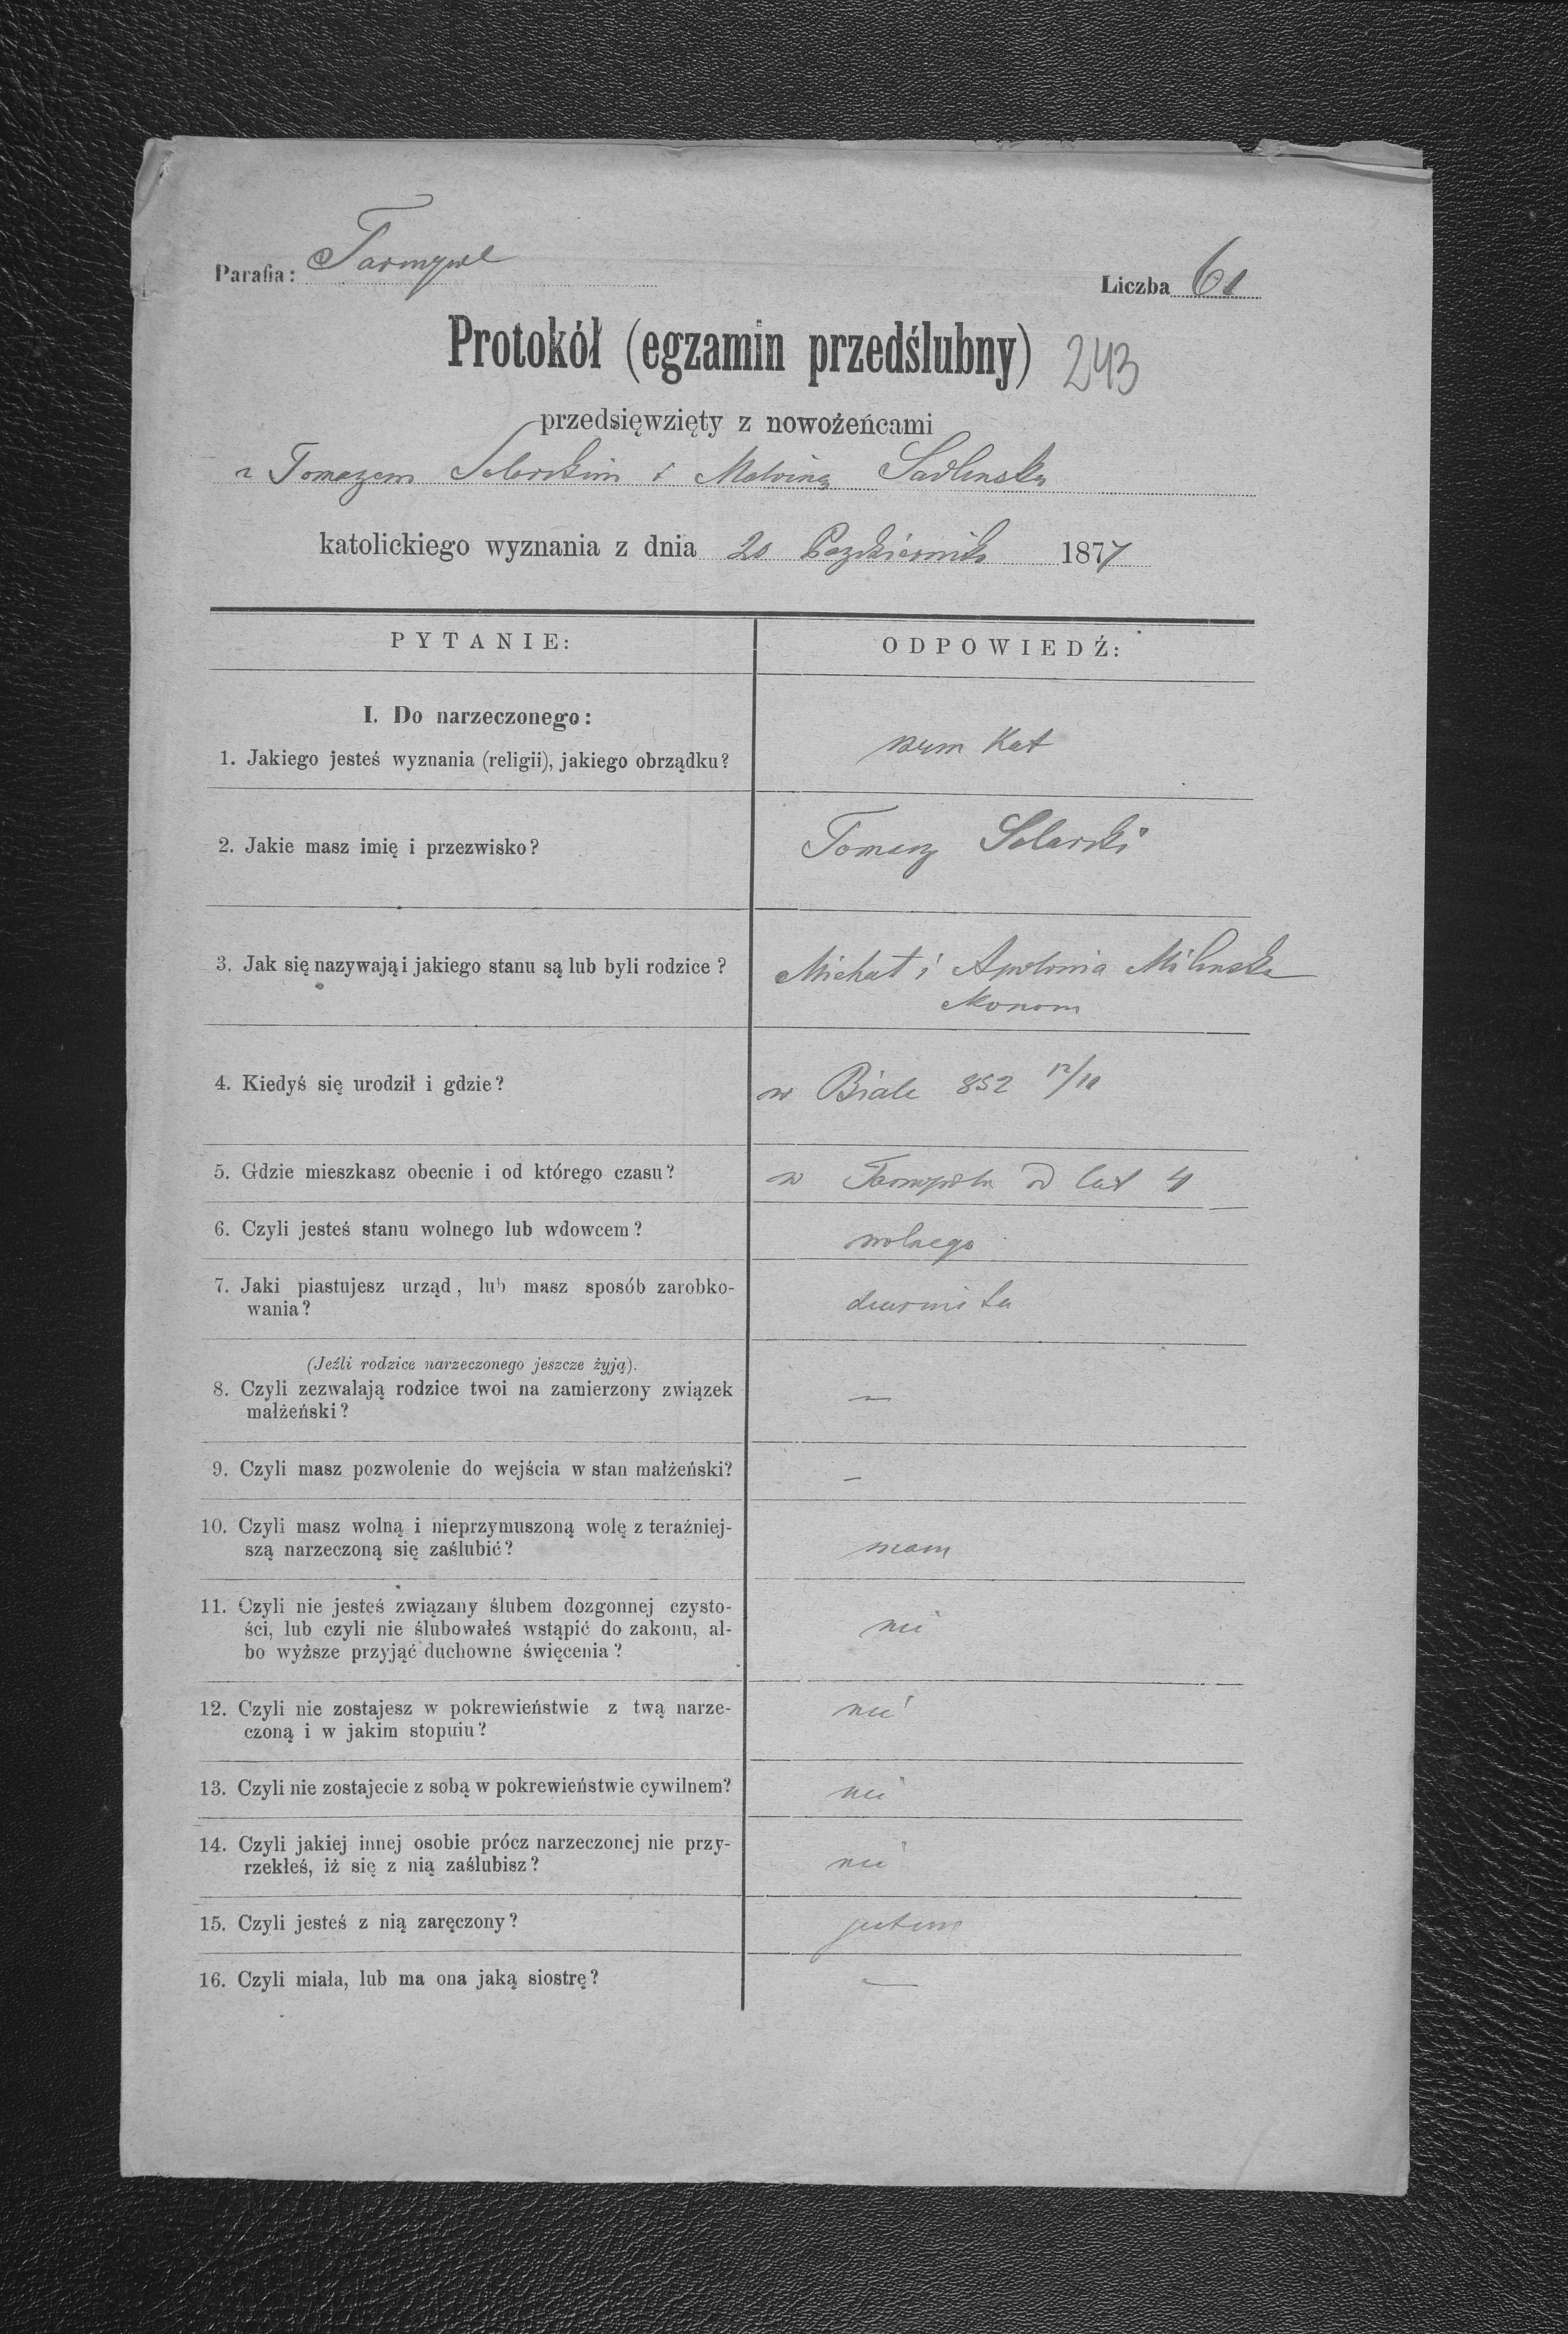 Parafia: Tarnopol
Liczba 61
Protokół (egzamin przedślubny) 243
przedsięwzięty z nowożeńcami
z Tomaszem Solarskim i Malviną Sadlinską
katolickiego wyznania z dnia 20 Pazdziernika 1877
PYTANIE:
ODPOWIEDŹ:
I. Do narzeczonego:
1. Jakiego jesteś wyznania (religii), jakiego obrządku?
rzym Kat
2. Jakie masz imię i przezwisko?
Tomasz Solarski
3. Jak się nazywają i jakiego stanu są lub byli rodzice ?
Michał i Apolonia Milinska
ekonom
4. Kiedyś się urodził i gdzie?
w Biale 852 12/11
5. Gdzie mieszkasz obecnie i od którego czasu?
w Tarnopolu od lat 4
6. Czyli jesteś stanu wolnego lub wdowcem?
wolnego
7. Jaki piastujesz urząd, lub masz sposób zarobko-
wania?
diurnista
(Jeźli rodzice narzeczonego jeszcze żyją).
8. Czyli zezwalają rodzice twoi na zamierzony związek
małżeński?
—
9. Czyli masz pozwolenie do wejścia w stan małżeński?
—
10. Czyli masz wolną i nieprzymuszoną wolę z teraźniej-
szą narzeczoną się zaślubić?
mam
11. Czyli nie jesteś związany ślubem dozgonnej czysto-
ści, lub czyli nie ślubowałeś wstąpić do zakonu, al-
bo wyższe przyjąć duchowne święcenia?
nie
12. Czyli nie zostajesz w pokrewieństwie z twą narze-
czoną i w jakim stopuiu?
nie
13. Czyli nie zostajecie z sobą w pokrewieństwie cywilnem?
nie
14. Czyli jakiej innej osobie prócz narzeczonej nie przy-
rzekłeś, iż się z nią zaślubisz?
nie
15. Czyli jesteś z nią zaręczony?
jestem
16. Czyli miała, lub ma ona jaką siostrę?
—